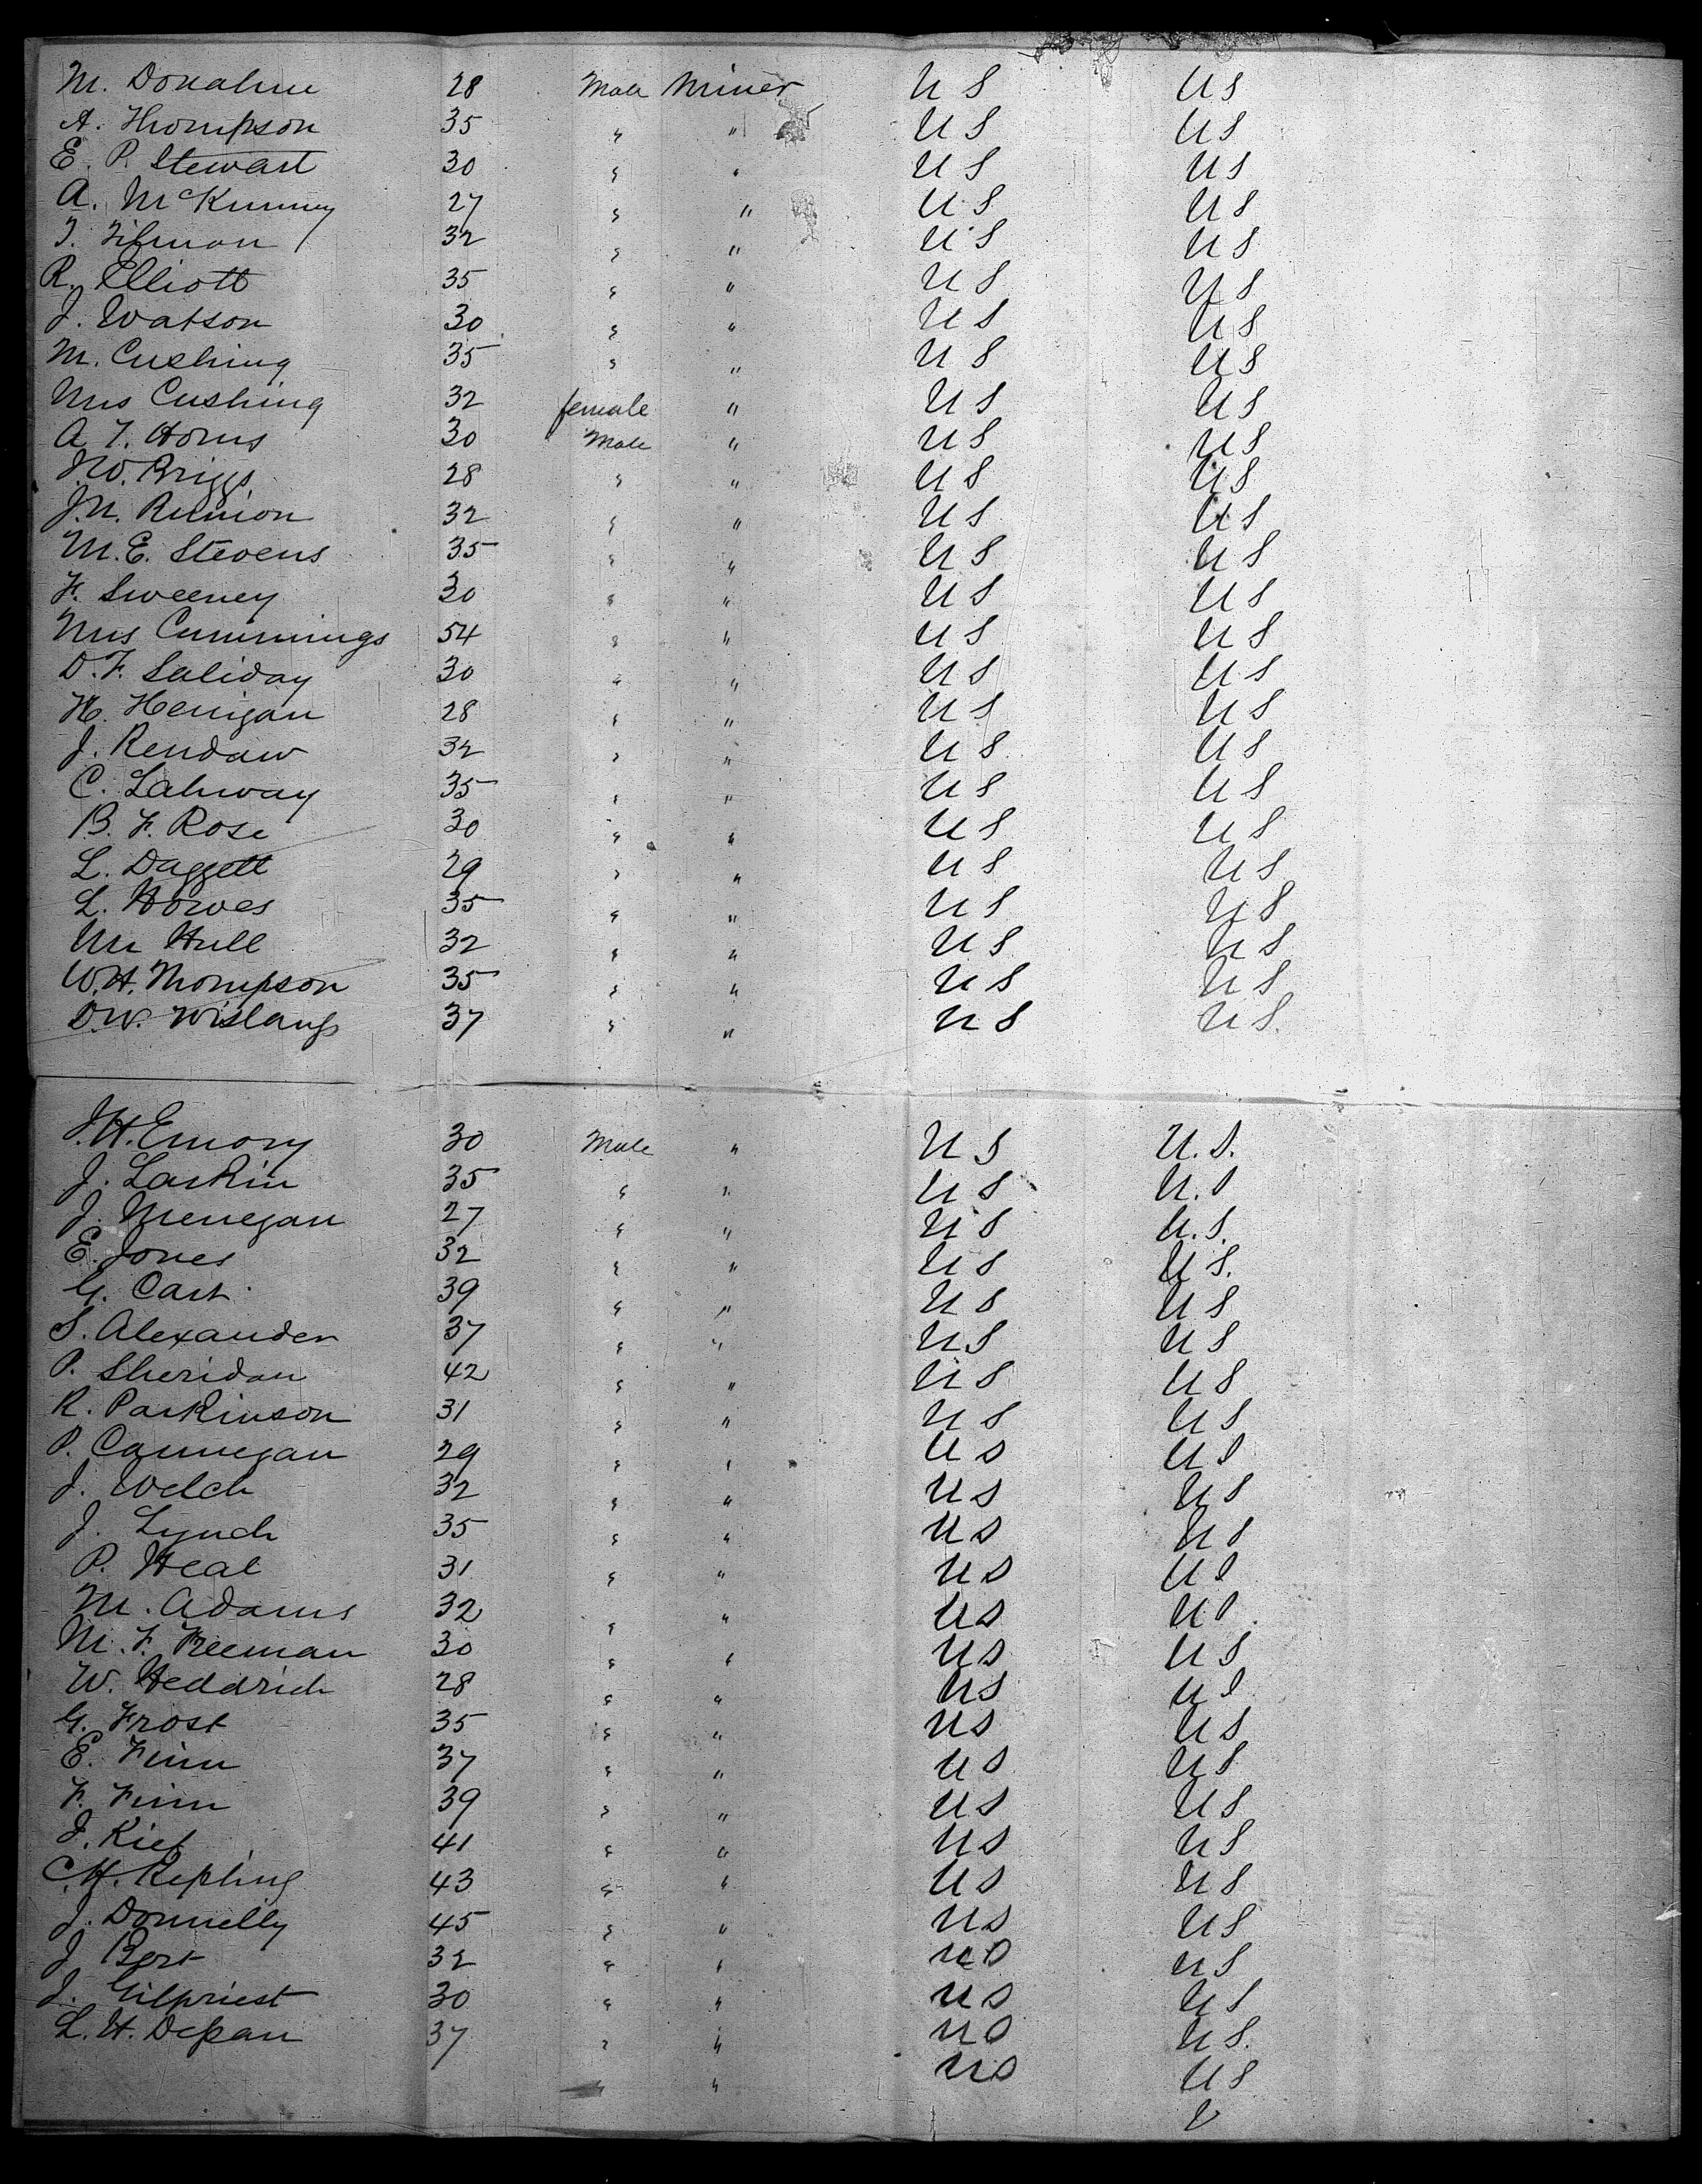 M. Donahue 28 Male Miner U S U S
A. Thompson 35 " " U S U S
E. P. Stewart 30 " " U S U S
A. McKinney 27 " " U S U S
32 " " U S U S
R. Elliott 35 " " U S U S
J. Watson 30 " " U S U S
M. Cushing 35 " " U S U S
Mrs Cushing 32 female " U S U S
A. T. 30 Male " U S U S
J.W. Briggs 28 " " U S U S
J.N. Runion 32 " " U S U S
M.E. Stevens 35 " " U S U S
F. Sweeney 30 " " U S U S
Mrs Cummings 54 " " U S U S
D.F. Saliday 30 " " U S U S
H. Henigan 28 " " U S U S
J. Rendaw 32 " " U S U S
C. Lahway 35 " " U S U S
B. F. Rose 30 " " U S U S
L. Daggett 29 " " U S U S
L. Howes 35 " " U S U S
Hull 32 " " U S U S
W.H. Thompson 35 " " U S U S
D.W. 37 " " U S U S.
J.H. Emory 30 Male " U S U.S.
J. Larkin 35 " " U S U.S
J. Menegan 27 " " U S U.S.
E. Jones 32 " " U S U S.
G. Cart 39 " " U S U S
S. Alexander 37 " " U S U S
P. Sheridan 42 " " U S U S
R. Parkinson 31 " " U S U S
P. Cannegan 29 " " U S U S
J. Welch 32 " " U S U S
J. Lynch 35 " " U S U S
P. Heal 31 " " U S U S
M. Adams 32 " " U S U S
M. F. Freeman 30 " " U S U S
W. Heddrich 28 " " U S U S
G. Frost 35 " " U S U S
E. Finn 37 " " U S U S
F. Finn 39 " " U S U S
J. Kief 41 " " U S U S
C.H. Kepling 43 " " U S U S
J. Donnelly 45 " " U S U S
J 32 " " U S U S
J. Gilpriest 30 " " U S U S
L. H. Depan 37 " " U S U S.
" " U S U S